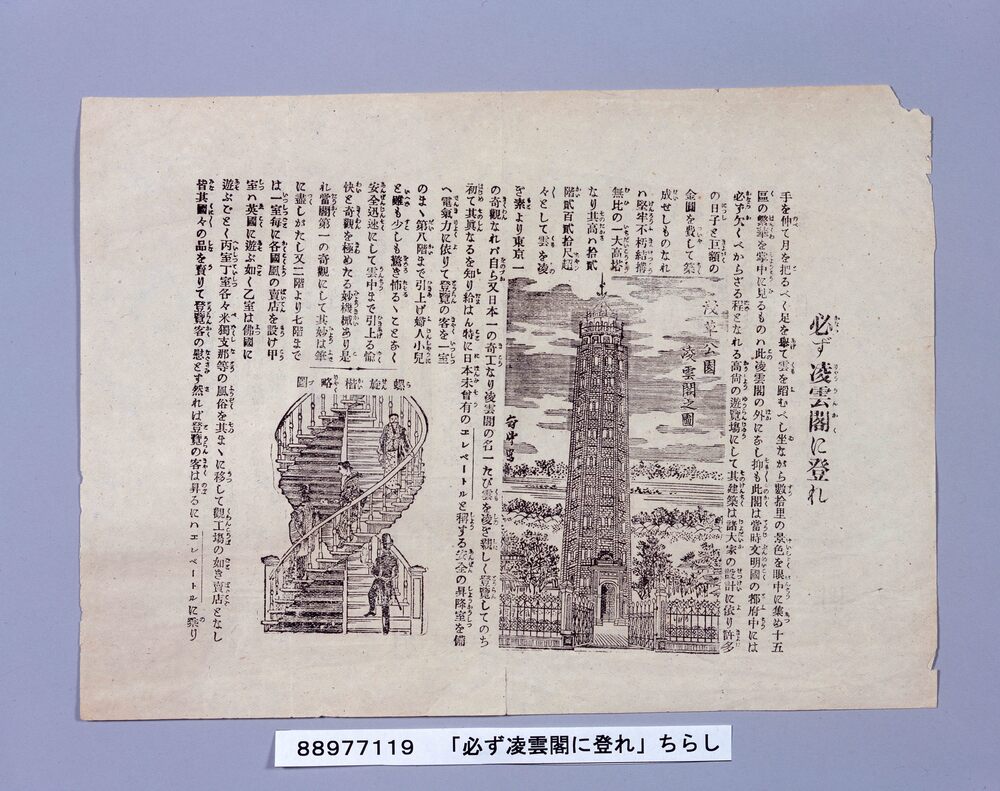 必ず凌雲閣に登れ
手を伸て月を把るべく足を擧て雲を踏むべし坐ながら數拾里の景色を眼中に集め十五
區の繁華を掌中に見るものハ此凌雲閣の外になし抑も此閣は當時文明國の都府中には
必ず欠くべからざる程となれる高尚の遊覽塲にして其建築は諸大家の設計に依り許多
の日子と巨額の
金圓を費して築
成せしものなれ
ハ堅牢不朽結搆
無比の一大高塔
なり其高ハ拾貳
階貳百貳拾尺超
々として雲を凌
ぎ素より東京一
の奇觀なれバ自ら又日本一の奇工なり凌雲閣の名一たび雲を凌ぎ親しく登覽してのち
初て其真なるを知り給はん特に日本未曾有のエレベートルと稱する安全の昇降室を備
へ電氣力に依りて登覽の客を一室
のまゝ第八階まで引上げ婦人小兒
と雖も少しも驚き怖るゝことなく
安全迅速にして雲中まで引上る愉
快と奇觀を極めたる妙機械あり是
れ當閣第一の奇觀にして其妙は筆
に盡しがたし又二階より七階まで
は一室毎に各國風の賣店を設け甲
室ハ英國に遊ぶ如く乙室は佛國に
遊ぶごとく丙室丁室各々米獨支那等の風俗を其まゝに移して觀工塲の如き賣店となし
皆其國々の品を賣りて登覽客の慰とす然れば登覽の客は昇るにハエレベートルに乗り
淺草公園
凌雲閣之圖
螺旋楷略圖
88977119 「必ず凌雲閣に登れ」ちらし